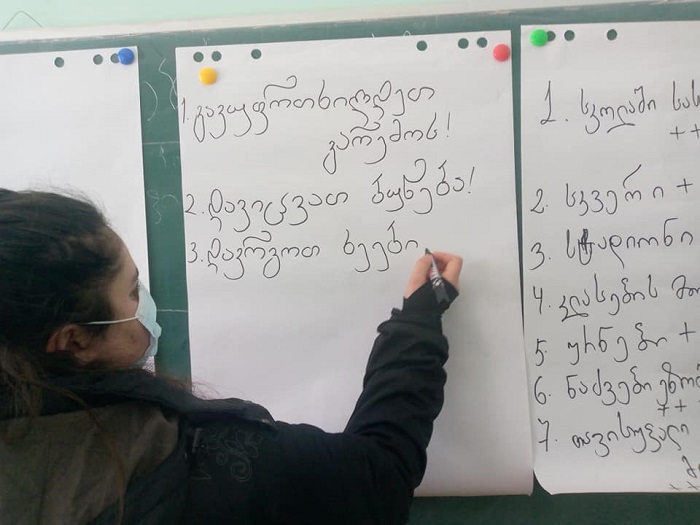 1. გავუფრთხილდეთ
გარემოს!
2. დავიცვათ ბუნება!
3. დავრგოთ ხეები
1. სკოლაში სას
++
2. სკვერი +
3. სტადიონი
4. კლასების მო
5. ურნები +
6. ნაძვები ეზო
++
7. თავისუფალი
++